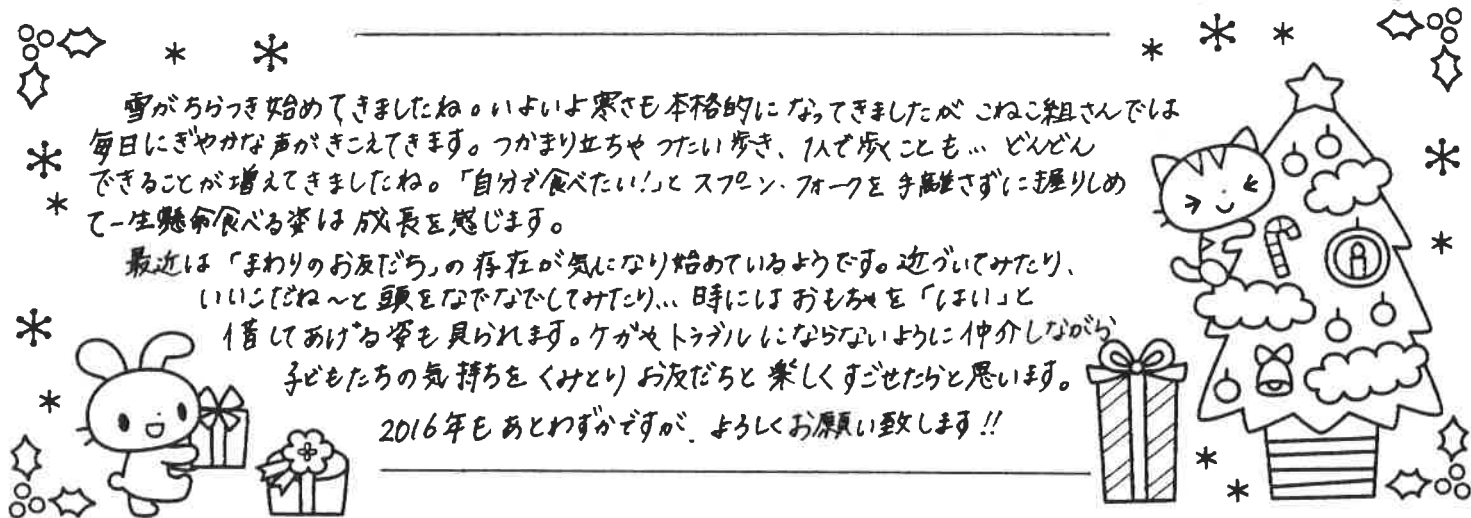 雪がちらつき始めてきましたね。いよいよ寒さも本格的になってきましたが こねこ組さんでは
毎日にぎやかな声がきこえてきます。つかまり立ちや つたい歩き、1人で歩くことも… どんどん
できることが増えてきましたね。「自分で食べたい！」と スプーン・フォークを 手離さずに握りしめ
て一生懸命食べる姿は 成長を感じます。
最近は「まわりのお友だち」の 存在が気になり始めているようです。近づいてみたり、
いいこだね～と 頭をなでなでしてみたり… 時には おもちゃを「はい」と
借してあげる姿も見られます。ケガやトラブルにならないように仲介しながら
子どもたちの気持ちを くみとり お友だちと 楽しくすごせたらと思います。
2016年も あとわずかですが、よろしくお願い致します!!